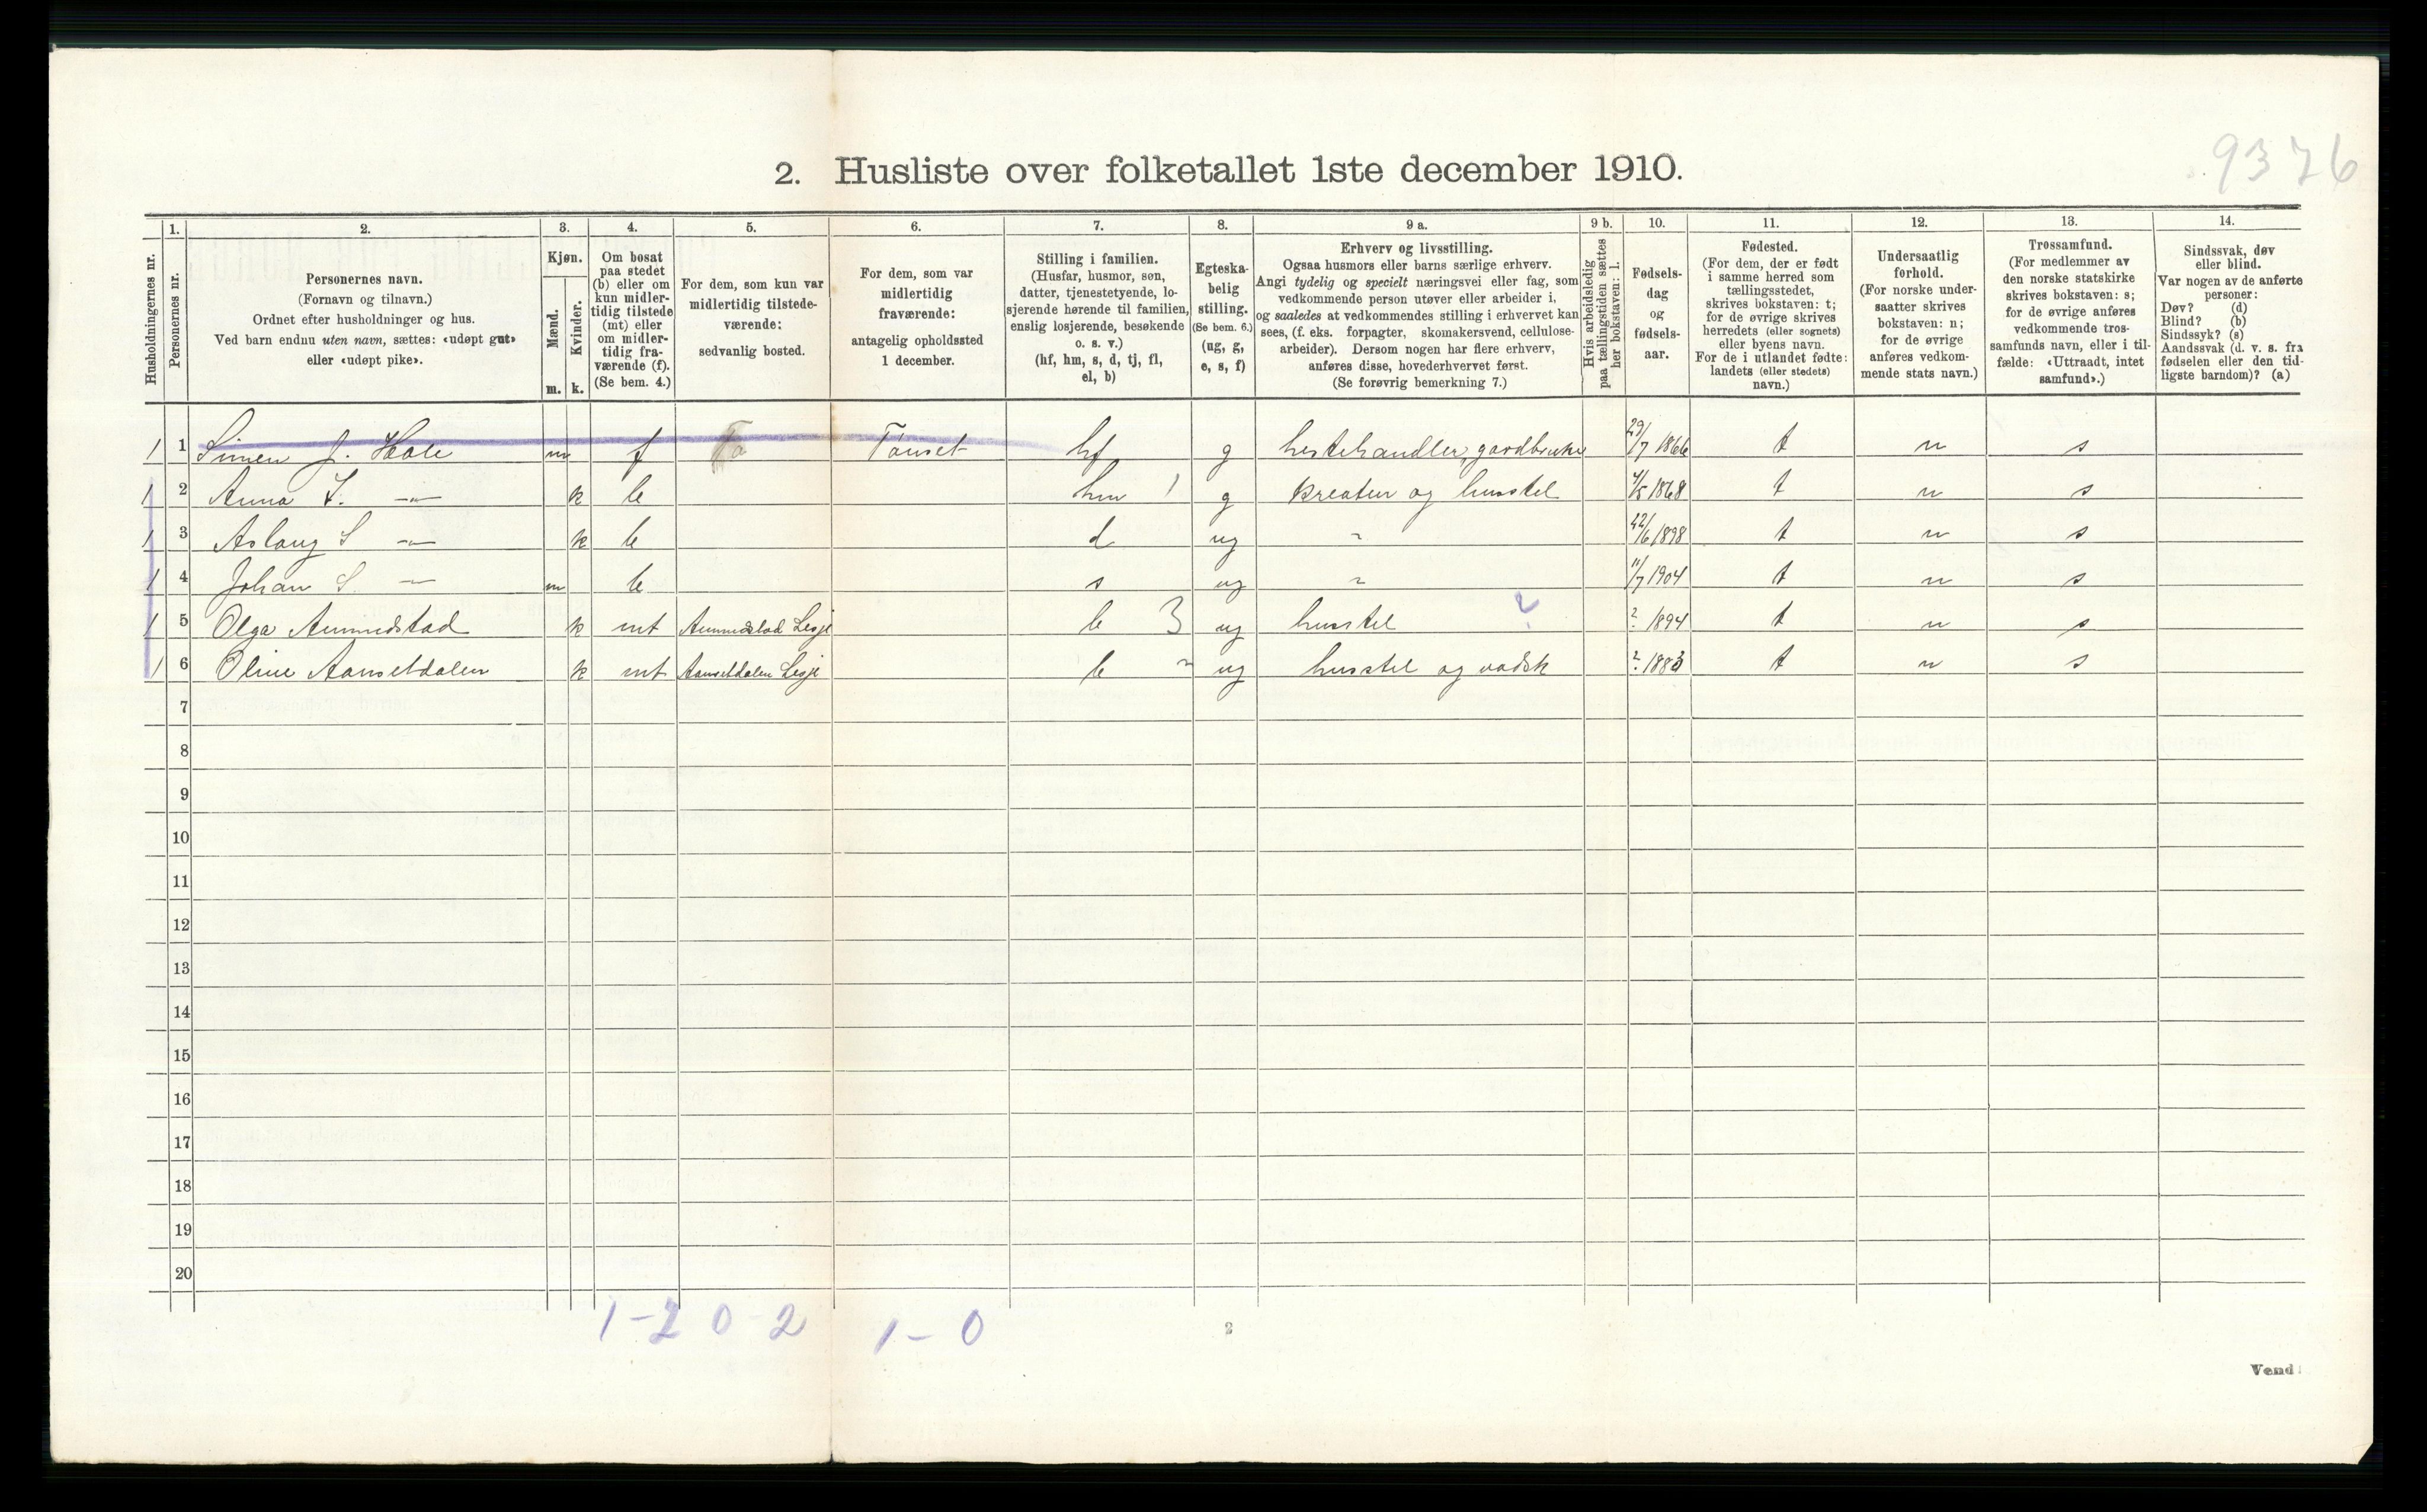 9376
2. Husliste over folketallet 1ste december 1910.
Husholdningernes nr.
1. Personernes nr.
2. Personernes navn.
(Fornavn og tilnavn.)
Ordnet efter husholdninger og hus.
Ved barn endnu uten navn, sættes: «udøpt gut»
eller «udøpt pike».
3. Kjøn.
Mænd. m.
Kvinder. k.
4. Om bosat
paa stedet
(b) eller om
kun midler-
tidig tilstede
(mt) eller
om midler-
tidig fra-
værende (f).
(Se bem. 4.)
5. For dem, som kun var
midlertidig tilstede-
værende:
sedvanlig bosted.
6. For dem, som var
midlertidig
fraværende:
antagelig opholdssted
1 december.
7. Stilling i familien.
(Husfar, husmor, søn,
datter, tjenestetyende, lo-
sjerende hørende til familien,
enslig losjerende, besøkende
o. s. v.)
(hf, hm, s, d, tj, fl,
el, b)
8. Egteska-
belig
stilling.
(Se bem. 6.)
(ug, g,
e, s, f)
9 a. Erhverv og livsstilling.
Ogsaa husmors eller barns særlige erhverv.
Angi tydelig og specielt næringsvei eller fag, som
vedkommende person utøver eller arbeider i,
og saaledes at vedkommendes stilling i erhvervet kan
sees, (f. eks. forpagter, skomakersvend, cellulose-
arbeider). Dersom nogen har flere erhverv,
anføres disse, hovederhvervet først.
(Se forøvrig bemerkning 7.)
9 b. Hvis arbeidsledig
paa tællingstiden sættes
her bokstaven: l.
10. Fødsels-
dag
og
fødsels-
aar.
11. Fødested.
(For dem, der er født
i samme herred som
tællingsstedet,
skrives bokstaven: t;
for de øvrige skrives
herredets (eller sognets)
eller byens navn.
For de i utlandet fødte:
landets (eller stedets)
navn.)
12. Undersaatlig
forhold.
(For norske under-
saatter skrives
bokstaven: n;
for de øvrige
anføres vedkom-
mende stats navn.)
13. Trossamfund.
(For medlemmer av
den norske statskirke
skrives bokstaven: s;
for de øvrige anføres
vedkommende tros-
samfunds navn, eller i til-
fælde: «Uttraadt, intet
samfund».)
14. Sindssvak, døv
eller blind.
Var nogen av de anførte
personer:
Døv? (d)
Blind? (b)
Sindssyk? (s)
Aandssvak (d. v. s. fra
fødselen eller den tid-
ligste barndom)? (a)
1 1 Simen J. Hole m f Tønset hf g hestehandler, gardbruker 29/7 1866 t n s
1 2 Anna k b hm 1 g kreatur og husstel 4/5 1868 t n s
1 3 Aslaug S k b d ug " 22/6 1898 t n s
1 4 Johan S. m b s ug " 11/7 1904 t n s
1 5 Olga Aumdstad k mt Lesje b 3 ug husstel ? ? 1894 t n s
1 6 Oline Aansetdalen k mt Aansetdalen Lesje b " ug husstel og vadsk ? 1883 t n s
7
8
9
10
11
12
13
14
15
16
17
18
19
20
1-2 0-2 1-0
2
Vend